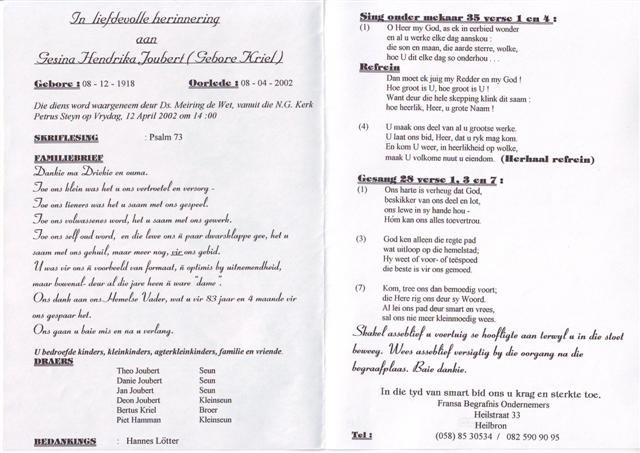 In liefdevolle herinnering
aan
Gesina Hendrika Joubert ( Gebore Kriel )
Gebore : 08 - 12 - 1918 Oorlede : 08 - 04 - 2002
Die diens word waargeneem deur Ds. Meiring de Wet, vanuit die N.G. Kerk
Petrus Steyn op Vrydag, 12 April 2002 om 14 :00
SKRIFLESING : Psalm 73
FAMILIEBRIEF
Dankie ma Driekie en ouma.
Toe ons klein was het u ons vertroetel en versorg -
Toe ons tieners was het u saam met ons gespeel.
Toe ons volwassenes word, het u saam met ons gewerk.
Toe ons self oud word, en die lewe ons 'n paar dwarsklappe gee, het u
saam met ons gehuil, maar meer nog, vir ons gebid.
U was vir ons 'n voorbeeld van formaat, 'n optimis by uitnemendheid,
maar bowenal- deur al die jare heen 'n ware "dame".
Ons dank aan ons Hemelse Vader, wat u vir 83 jaar en 4 maande vir
ons gespaar het.
Ons gaan u baie mis en na u verlang.
U bedroefde kinders, kleinkinders, agterkleinkinders, familie en vriende.
DRAERS
Theo Joubert Seun
Danie Joubert Seun
Jan Joubert Seun
Deon Joubert Kleinseun
Bertus Kriel Broer
Piet Hamman Kleinseun
BEDANKINGS : Hannes Lötter
Sing onder mekaar 35 verse 1 en 4 :
(1) O Heer my God, as ek in eerbied wonder
en al u werke elke dag aanskou :
die son en maan, die aarde sterre, wolke,
hoe U dit elke dag so onderhou . . .
Refrein
Dan moet ek juig my Redder en my God !
Hoe groot is U, hoe groot is U !
Want deur die hele skepping klink dit saam :
hoe heerlik, Heer, u grote Naam !
(4) U maak ons deel van al u grootse werke.
U laat ons bid, Heer, dat u ryk mag kom.
En kom U weer, in heerlikheid op wolke,
maak U volkome nuut u eiendom. (Herhaal refrein)
Gesang 28 verse 1, 3 en 7 :
(1) Ons harte is verheug dat God,
beskikker van ons deel en lot,
ons lewe in sy hande hou -
Hóm kan ons alles toevertrou.
(3) God ken alleen die regte pad
wat uitloop op die hemelstad;
Hy weet of voor- of teëspoed
die beste is vir ons gemoed.
(7) Kom, tree ons dan bemoedig voort;
die Here rig ons deur sy Woord.
Al lei ons pad deur smart en vrees,
sal ons nie meer kleinmoedig wees.
Skakel asseblief u voertuig se hoofligte aan terwyl u in die stoet
beweeg. Wees asseblief versigtig by die oorgang na die
begraafplaas. Baie dankie.
In die tyd van smart bid ons u krag en sterkte toe.
Fransa Begrafnis Ondernemers
Heilstraat 33
Heilbron
Tel : (058) 85 30534 / 082 590 90 95